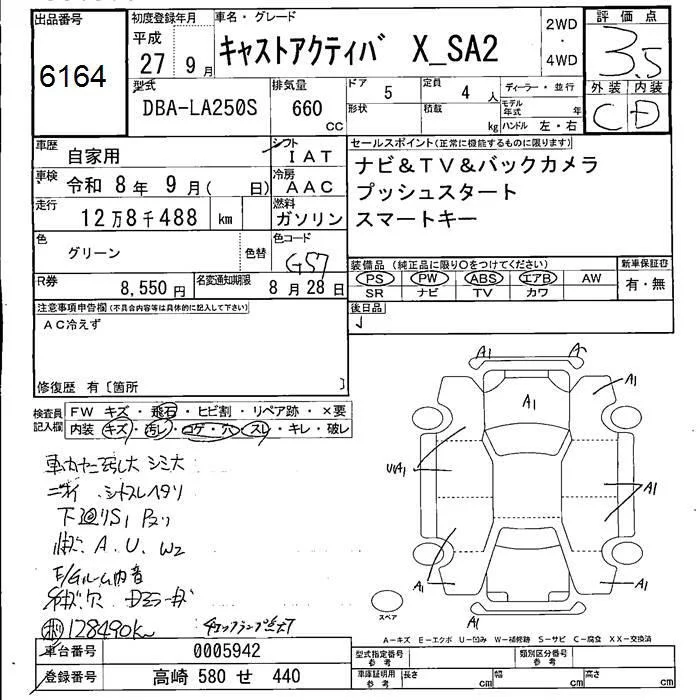 出品番号
6164
初度登録年月
平成
27 9月
車名・グレード
キャストアクティバ X_SA2
2WD
・
4WD
評価点
3.5
外装 内装
C D
型式
DBA-LA250S
排気量
660
cc
ドア
5
定員
4 人
形状
積載
kg
ディーラー・並行
モデル年式 年
ハンドル 左・右
車歴
自家用
シフト
IAT
車検
令和 8年 9月( 日)
冷房
AAC
走行
12万8千488 km
燃料
ガソリン
色
グリーン
色替
色コード
G57
R券
8,550円
名変通知期限
8月28日
セールスポイント(正常に機能するものに限ります)
ナビ&TV&バックカメラ
プッシュスタート
スマートキー
装備品 (純正品に限り○をつけてください)
PS PW ABS エアB AW
SR ナビ TV カワ
新車保証書
有・無
後日品
注意事項申告欄(不具合内容等は具体的に記入して下さい)
AC冷えず
修復歴 有〔箇所 〕
検査員記入欄
FW キズ・飛石・ヒビ割・リペア跡・×要
内装 キズ・汚レ・コゲ・穴・スレ・キレ・破レ
シミ大
下廻りS1
A. U. W2
128490k
チェックランプ
A1
A
A1
A1
UA1
A1
A1
A1
A1
スペア
A-キズ E-エクボ U-凹み W-補修跡 S-サビ C-腐食 XX-交換済
車台番号
0005942
登録番号
高崎 580 せ 440
型式指定番号
参考
類別区分番号
参考
車庫証明用
参考
長さ cm
幅 cm
高さ cm